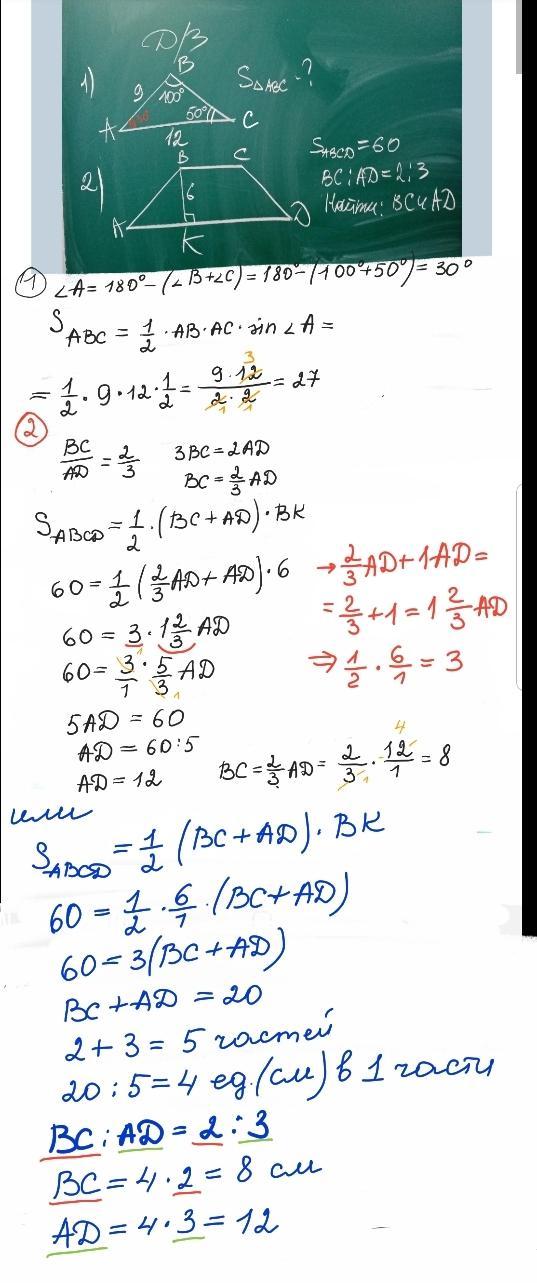 D/З
1)
B
9
100°
S△ABC - ?
A
30°
50°
C
12
2)
B
C
6
A
K
D
SABCD = 60
BC : AD = 2 : 3
Найти: BC и AD
1 ∠A = 180° - (∠B + ∠C) = 180° - (100° + 50°) = 30°
SABC = 1/2 · AB · AC · sin ∠A =
= 1/2 · 9 · 12 · 1/2 = 9 · 12 / 2 · 2 = 27
3
1 1
2
BC/AD = 2/3 3BC = 2AD
BC = 2/3 AD
SABCD = 1/2 · (BC + AD) · BK
60 = 1/2 (2/3 AD + AD) · 6
60 = 3 · 1 2/3 AD
60 = 3/1 · 5/3 AD
1
1
5AD = 60
AD = 60 : 5
AD = 12
→ 2/3 AD + 1AD =
= 2/3 + 1 = 1 2/3 AD
⇒ 1/2 · 6/1 = 3
BC = 2/3 AD = 2/3 · 12/1 = 8
4
1
или
SABCD = 1/2 (BC + AD) · BK
60 = 1/2 · 6/1 · (BC + AD)
60 = 3(BC + AD)
BC + AD = 20
2 + 3 = 5 частей
20 : 5 = 4 ед.(см) в 1 части
BC : AD = 2 : 3
BC = 4 · 2 = 8 см
AD = 4 · 3 = 12